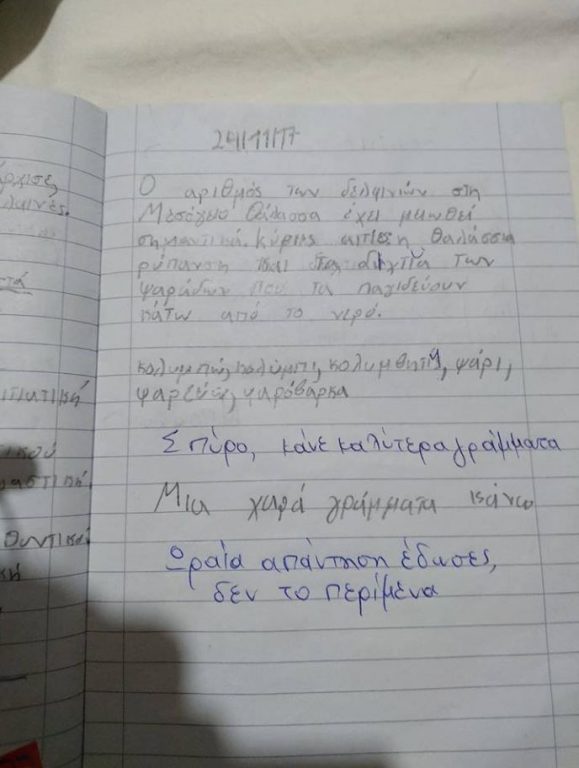 άρχισε
24/11/17
Ο αριθμός των δελφινιών στη
Μεσόγειο Θάλασσα έχει μειωθεί
σημαντικά. Κύριες αιτίες η θαλάσσια
ρύπανση και τα δίχτυα των
ψαράδων που τα παγιδεύουν
κάτω από το νερό.
κολυμπώ, κολύμπι, κολυμβητής, ψάρι,
ψαρεύω, ψαρόβαρκα
Σπύρο, κάνε καλύτερα γράμματα
Μια χαρά γράμματα κάνω
Ωραία απάντηση έδωσες,
δεν το περίμενα